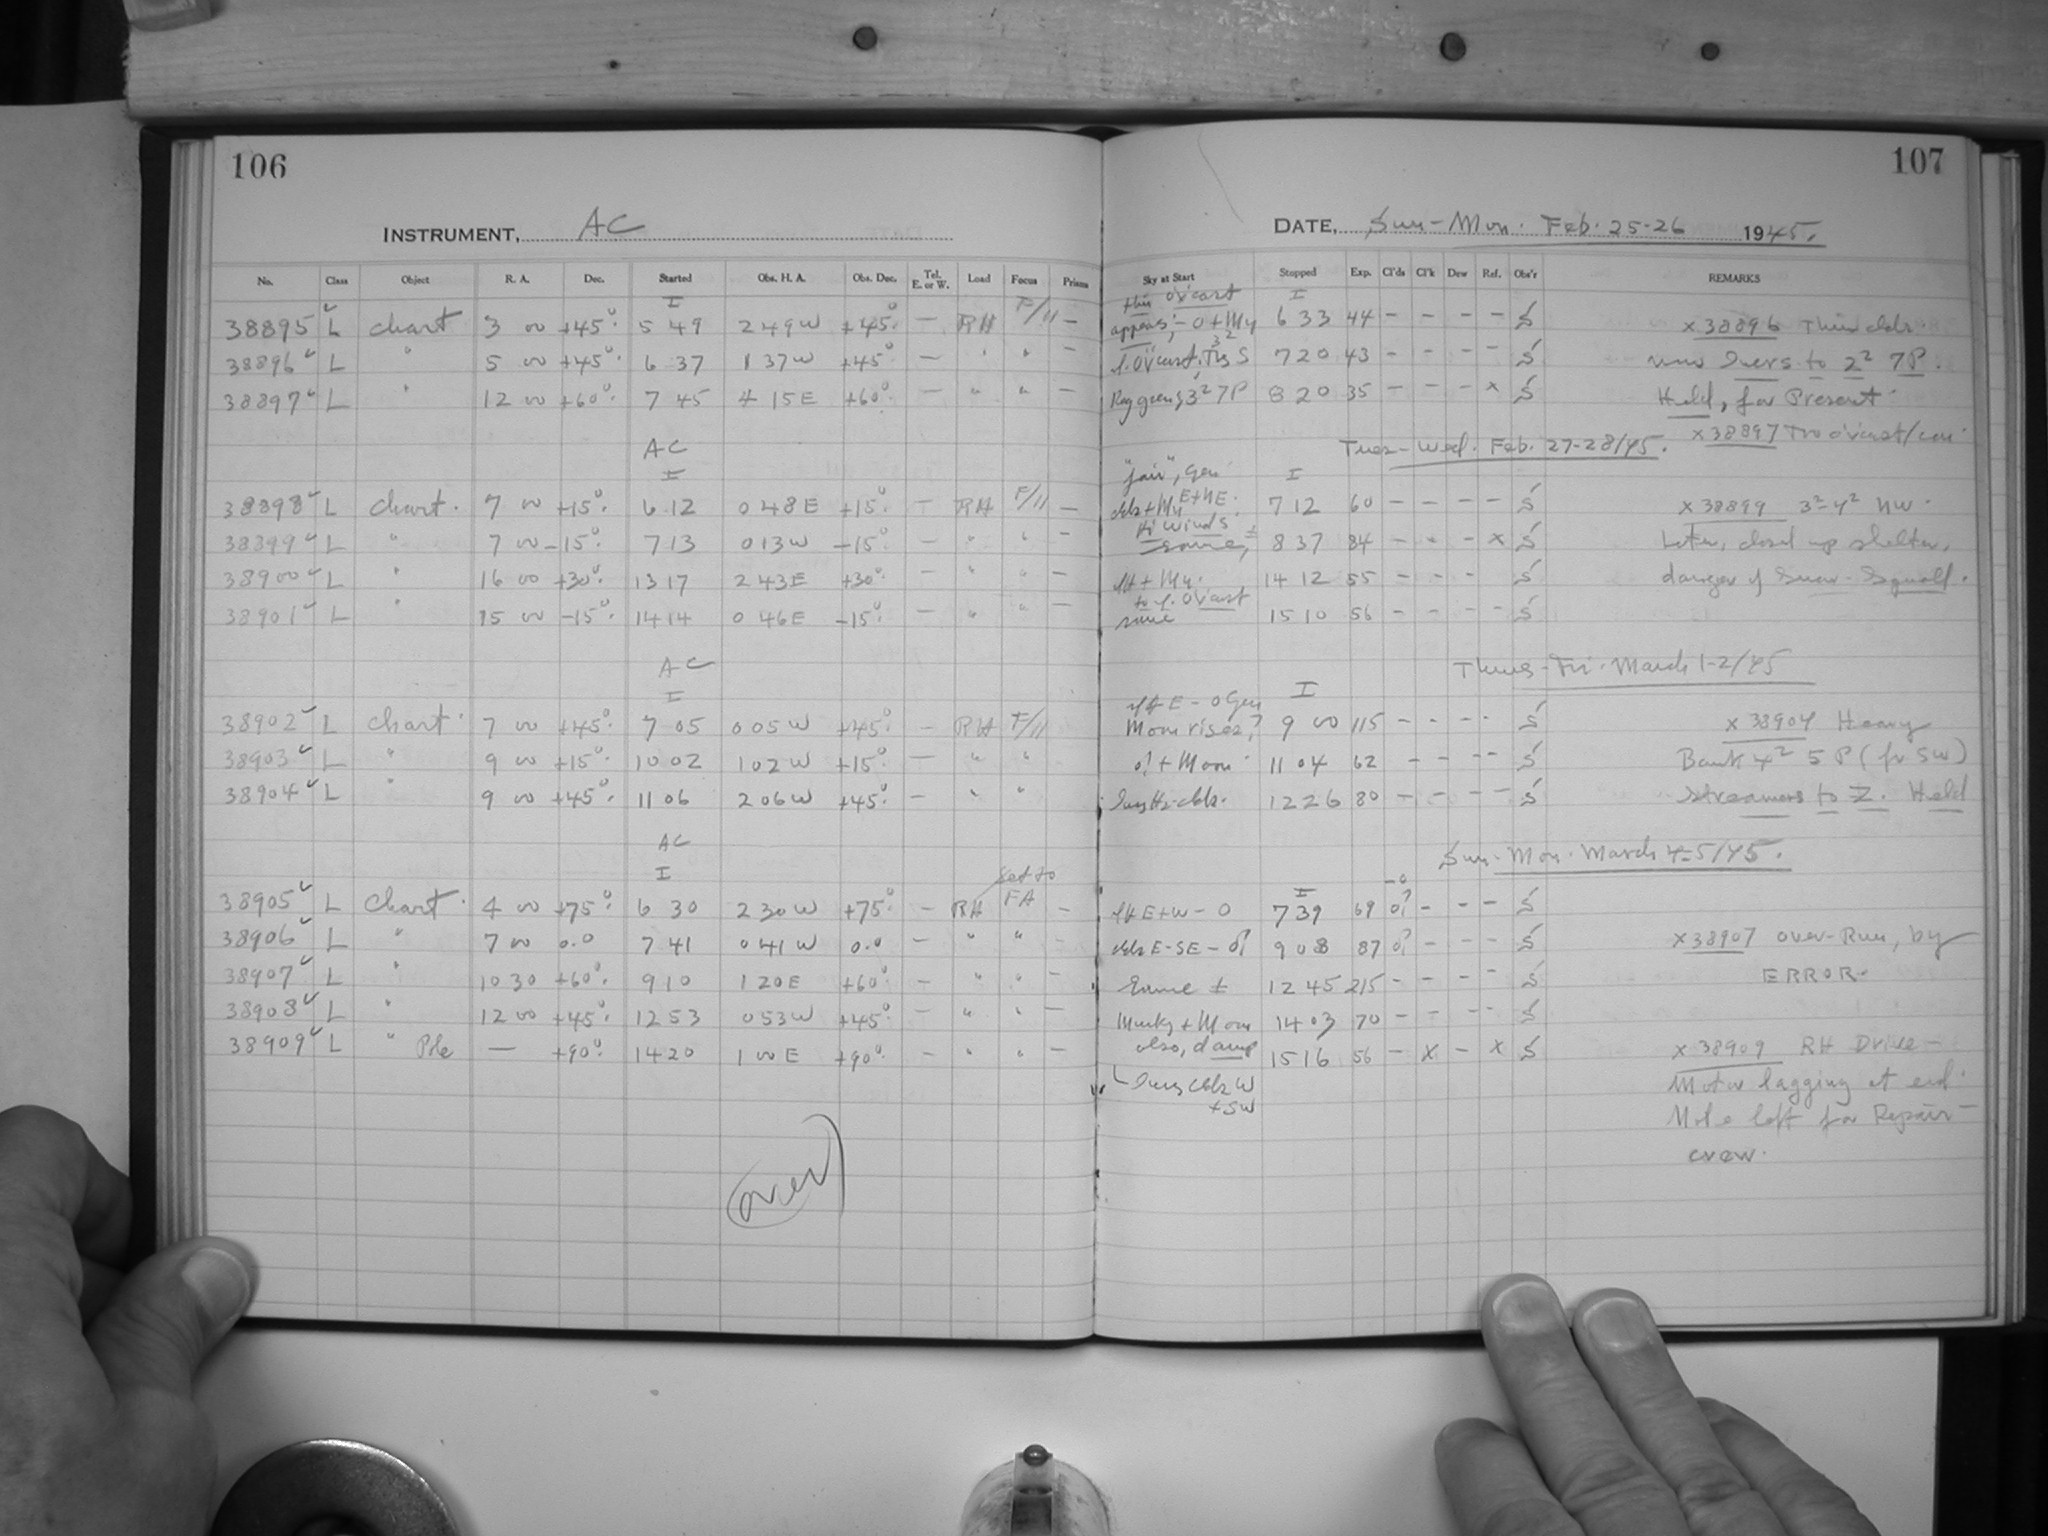 106
INSTRUMENT, AC
No. Class Object R. A. Dec. Started Obs. H. A. Obs. Dec. Tel. E. or W. Load Focus Prism
I
38895 L chart 3 00 +45° 5 49 2 49 W +45° — RH F/11 —
38896 L " 5 00 +45° 6 37 1 37 W +45° — " " —
38897 L " 12 00 +60° 7 45 4 15 E +60° — " " —
AC
I
38898 L chart. 7 00 +15° 6 12 0 48 E +15° — RH F/11 —
38399 L " 7 00 -15° 7 13 0 13 W -15° — " " —
38900 L " 16 00 +30° 13 17 2 43 E +30° — " " —
38901 L " 15 00 -15° 14 14 0 46 E -15° — " " —
AC
I
38902 L chart. 7 00 +45° 7 05 0 05 W +45° — RH F/11
38903 L " 9 00 +15° 10 02 1 02 W +15° — " "
38904 L " 9 00 +45° 11 06 2 06 W +45° — " "
AC
I
set to
38905 L chart. 4 00 +75° 6 30 2 30 W +75° — RH FA —
38906 L " 7 00 0.0 7 41 0 41 W 0.0 — " " —
38907 L " 10 30 +60° 9 10 1 20 E +60° — " " —
38908 L " 12 00 +45° 12 53 0 53 W +45° — " " —
38909 L " Pole — +90° 14 20 1 00 E +90° — " " —
over
107
DATE, Sun-Mon. Feb. 25-26 1945.
Sky at Start Stopped Exp. Cl'ds Cl'k Dew Ref. Obs'r REMARKS
thin ov'cast I
appears; - 0 + My 6 33 44 - - - - S x 38896 Thin clds.
ov'cast, S 7 20 43 - - - - S to 2² 7P.
3² 7P 8 20 35 - - - x S Held, for Present.
x 38897 ov'cast/
Tues-Wed. Feb. 27-28/45.
"fair", Gen. I
clds + My E + NE. 7 12 60 - - - - S x 38899 3²-4² NW.
Hi winds.
same, ± 8 37 84 - - - x S Later, closed up shelter,
+ My. 14 12 55 - - - S danger of Snow-Squall.
to ov'cast
same 15 10 56 - - - - S
Thurs-Fri. March 1-2/45
E - 0 Gen I
Moon rises? 9 00 115 - - - - S x 38904 Heavy
0? + Moon 11 04 62 - - - - S Bank 4² 5 P (fr SW)
clds. 12 26 80 - - - - S streamers to Z. Held
Sun-Mon. March 4-5/45.
-0
I
E+W - 0 7 39 69 0? - - - S
clds E-SE - 0? 9 08 87 0? - - - S x 38907 over-Run, by
Same ± 12 45 215 - - - - S ERROR.
Murky + Moon 14 03 70 - - - - S
also, damp 15 16 56 - x - x S x 38909 RH Drive-
clds W Motor lagging at end.
+ SW Note left for Repair-
crew.